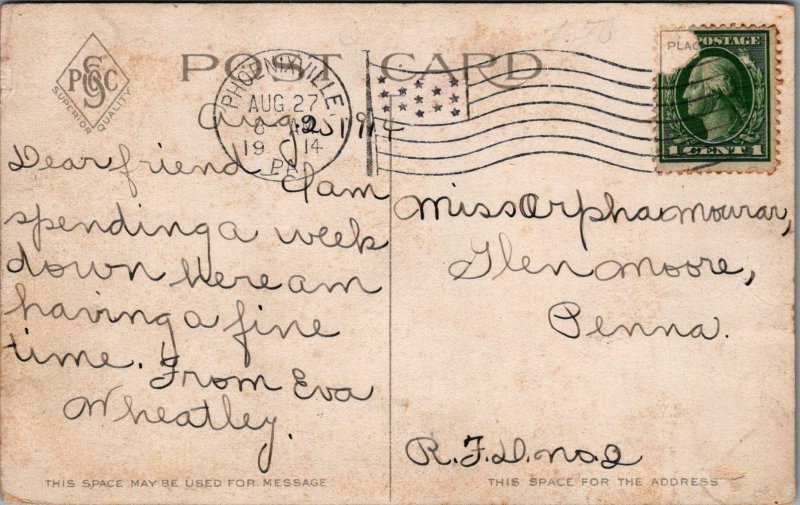 1.50
PSC
SUPERIOR QUALITY
POST CARD
PHOENIXVILLE
AUG 27
19 14
PA.
PLAC
POSTAGE
1 CENT 1
Aug 25 1914
Dear friend I am
spending a week
down here am
having a fine
time. From Eva
Wheatley.
Miss Orpha
Glen Moore,
Penna.
R.F.D. no. 2
THIS SPACE MAY BE USED FOR MESSAGE
THIS SPACE FOR THE ADDRESS